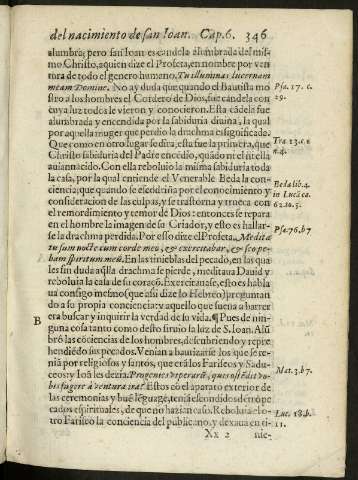 del nacimiento de san Ioan. Cap. 6. 346
alumbra; pero san Ioan es candela alumbrada del mis-
mo Christo, a quien dize el Profeta, en nombre por ven
tura de todo el genero humano, Tu illuminas lucernam
meam Domine. No ay duda que quando el Bautista mo
stro a los hombres el Cordero de Dios, fue candela con
cuya luz todos le vieron y conocieron. Esta cādela fue
alumbrada y encendida por la sabiduria diuina, la qual
por aquella muger que perdio la drachma es significada.
Que como en otro lugar se dira, esta fue la primera, que
Christo sabiduria del Padre encēdio, quādo ni el ni ella
auian nacido. Con ella reboluio la misma sabiduria toda
la casa, por la qual entiende el Venerable Beda la con-
ciencia; que quando se escudriña por el conocimiento y
consideracion de las culpas, y se trastorna y trueca con
el remordimiento y temor de Dios: entonces se repara
en el hombre la imagen de su Criador, y esto es hallar-
se la drachma perdida. Por esso dize el Profeta, Medita
tus sum nocte cum corde meo, & exercitabar, & scope-
bam spiritum meum. En las tinieblas del pecado, en las qua
les sin duda aquella drachma se pierde, meditaua Dauid y
reboluia la casa de su coraçō. Exercitauase, esto es habla
ua consigo mesmo (que assi dize lo Hebreo) preguntan
do a su propia conciencia: y aquello que suena a barrer
era buscar y inquirir la verdad de su vida. ¶ Pues de nin-
guna cosa tanto como desto siruio la luz de S. Ioan. Alū
bró las cōciencias de los hombres, descubriendo y repre
hendiēdo sus pecados. Venian a bautizarse los que se te-
nian por religiosos y santos, que erā los Fariseos y Sadu-
ceos: y Ioā les dezia. Progenies viperarū, quis ostēdit vo-
bis fugere à ventura ira? Estos cō el aparato exterior de
las ceremonias y buē lēguage, teniā escondidos dētro pe
cados espirituales, de que no haziā caso. Reboluia el o-
tro Fariseo la conciencia del publicano, y dexaua en ti-
Xx 2 nie-
Psa. 17. c.
29.
Tra. 13. c. 1
n. 4.
Beda lib. 4.
in Lucā ca.
62. to. 5.
Psa. 76. b 7
B
Mat. 3. b 7.
Luc. 18. b.
11.